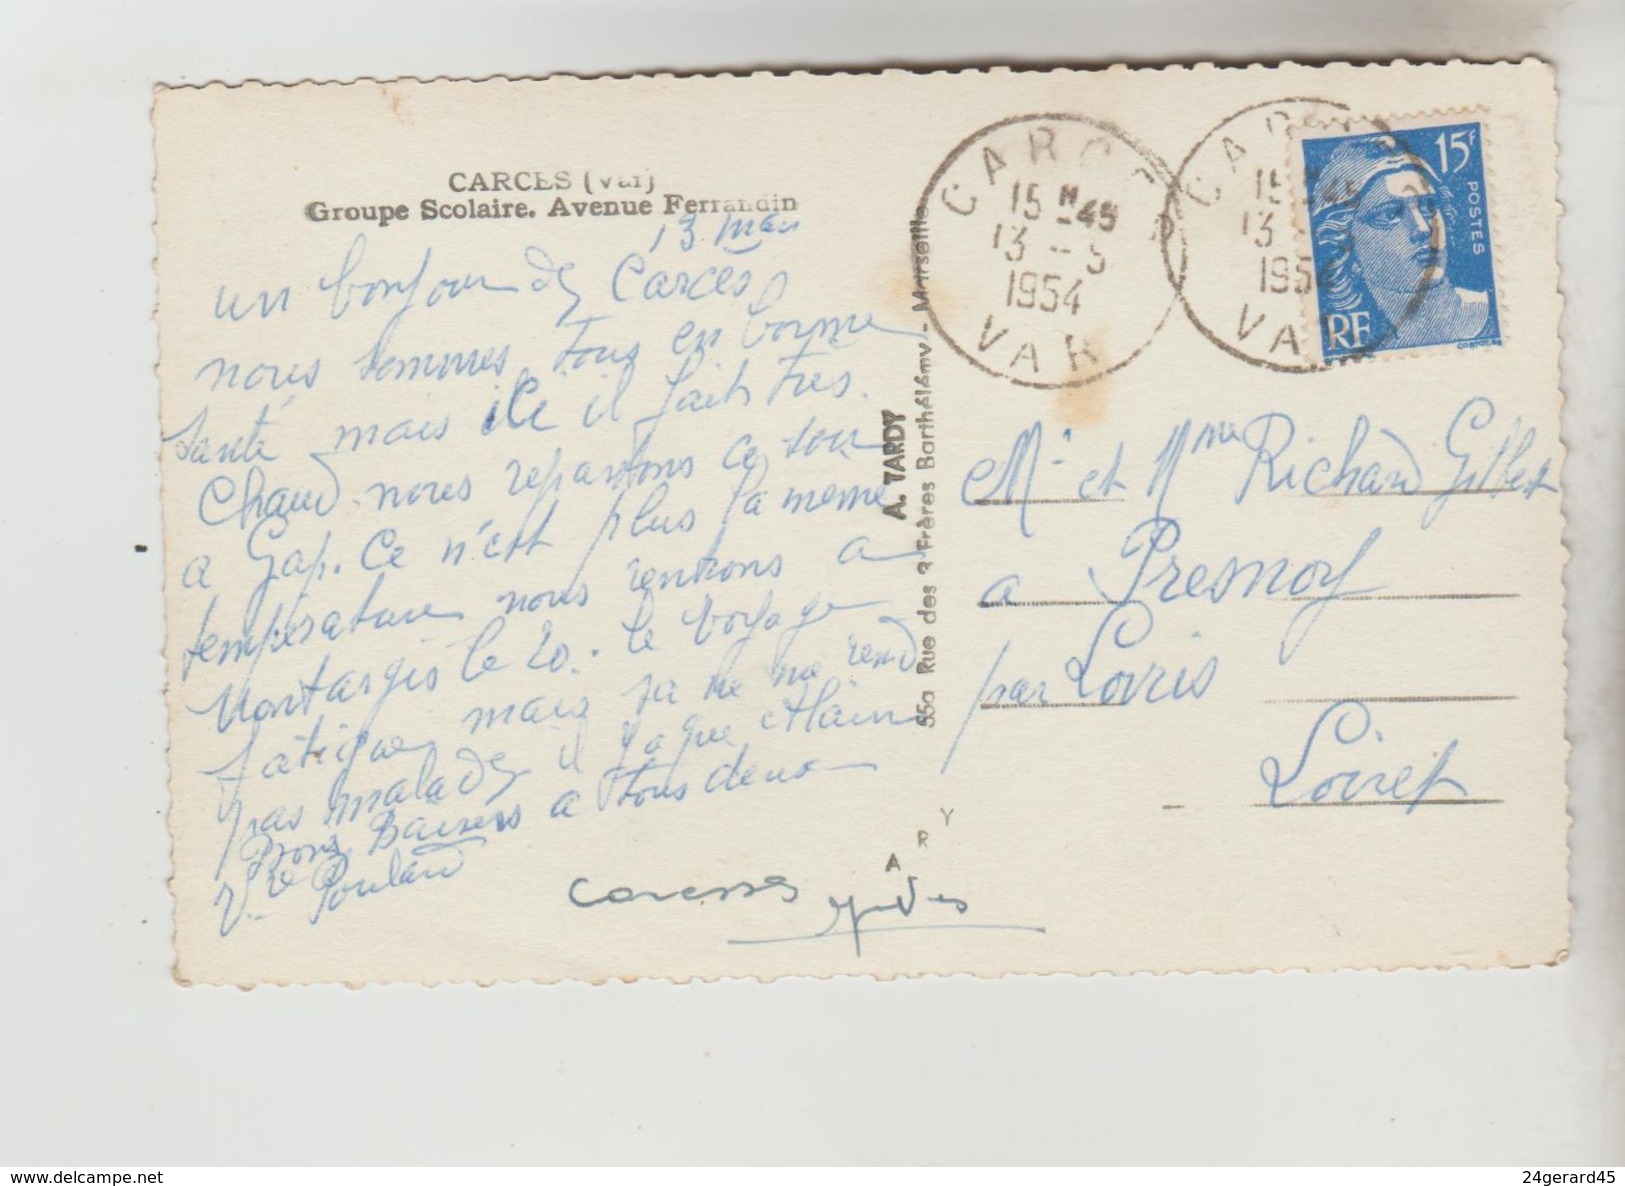 CARCES (Var)
Groupe Scolaire. Avenue Ferrandin
13 Mai
un bonjour de Carces
nous sommes tous en bonne
santé mais ici il fait très
Chaud. nous repartons ce soir
a Gap. Ce n'est plus la meme
température nous rentrons a
Montargis le 20. le voyage
fatigue mais ça ne me rend
pas malade il y a que Alain
Bons Baisers a tous deux
Vve Poulard
caresses
A. TARDY
55a Rue des 3 Frères Barthélémy - Marseille
A R Y
CARCES
15 H 45
13 - 5
1954
VAR
CARCES
15 H 45
13 - 5
1954
VAR
15F
POSTES
RF
Mr et Mme Richard Gillet
a Presnoy
par Lorris
Loiret
www.delcampe.net
24gerard45